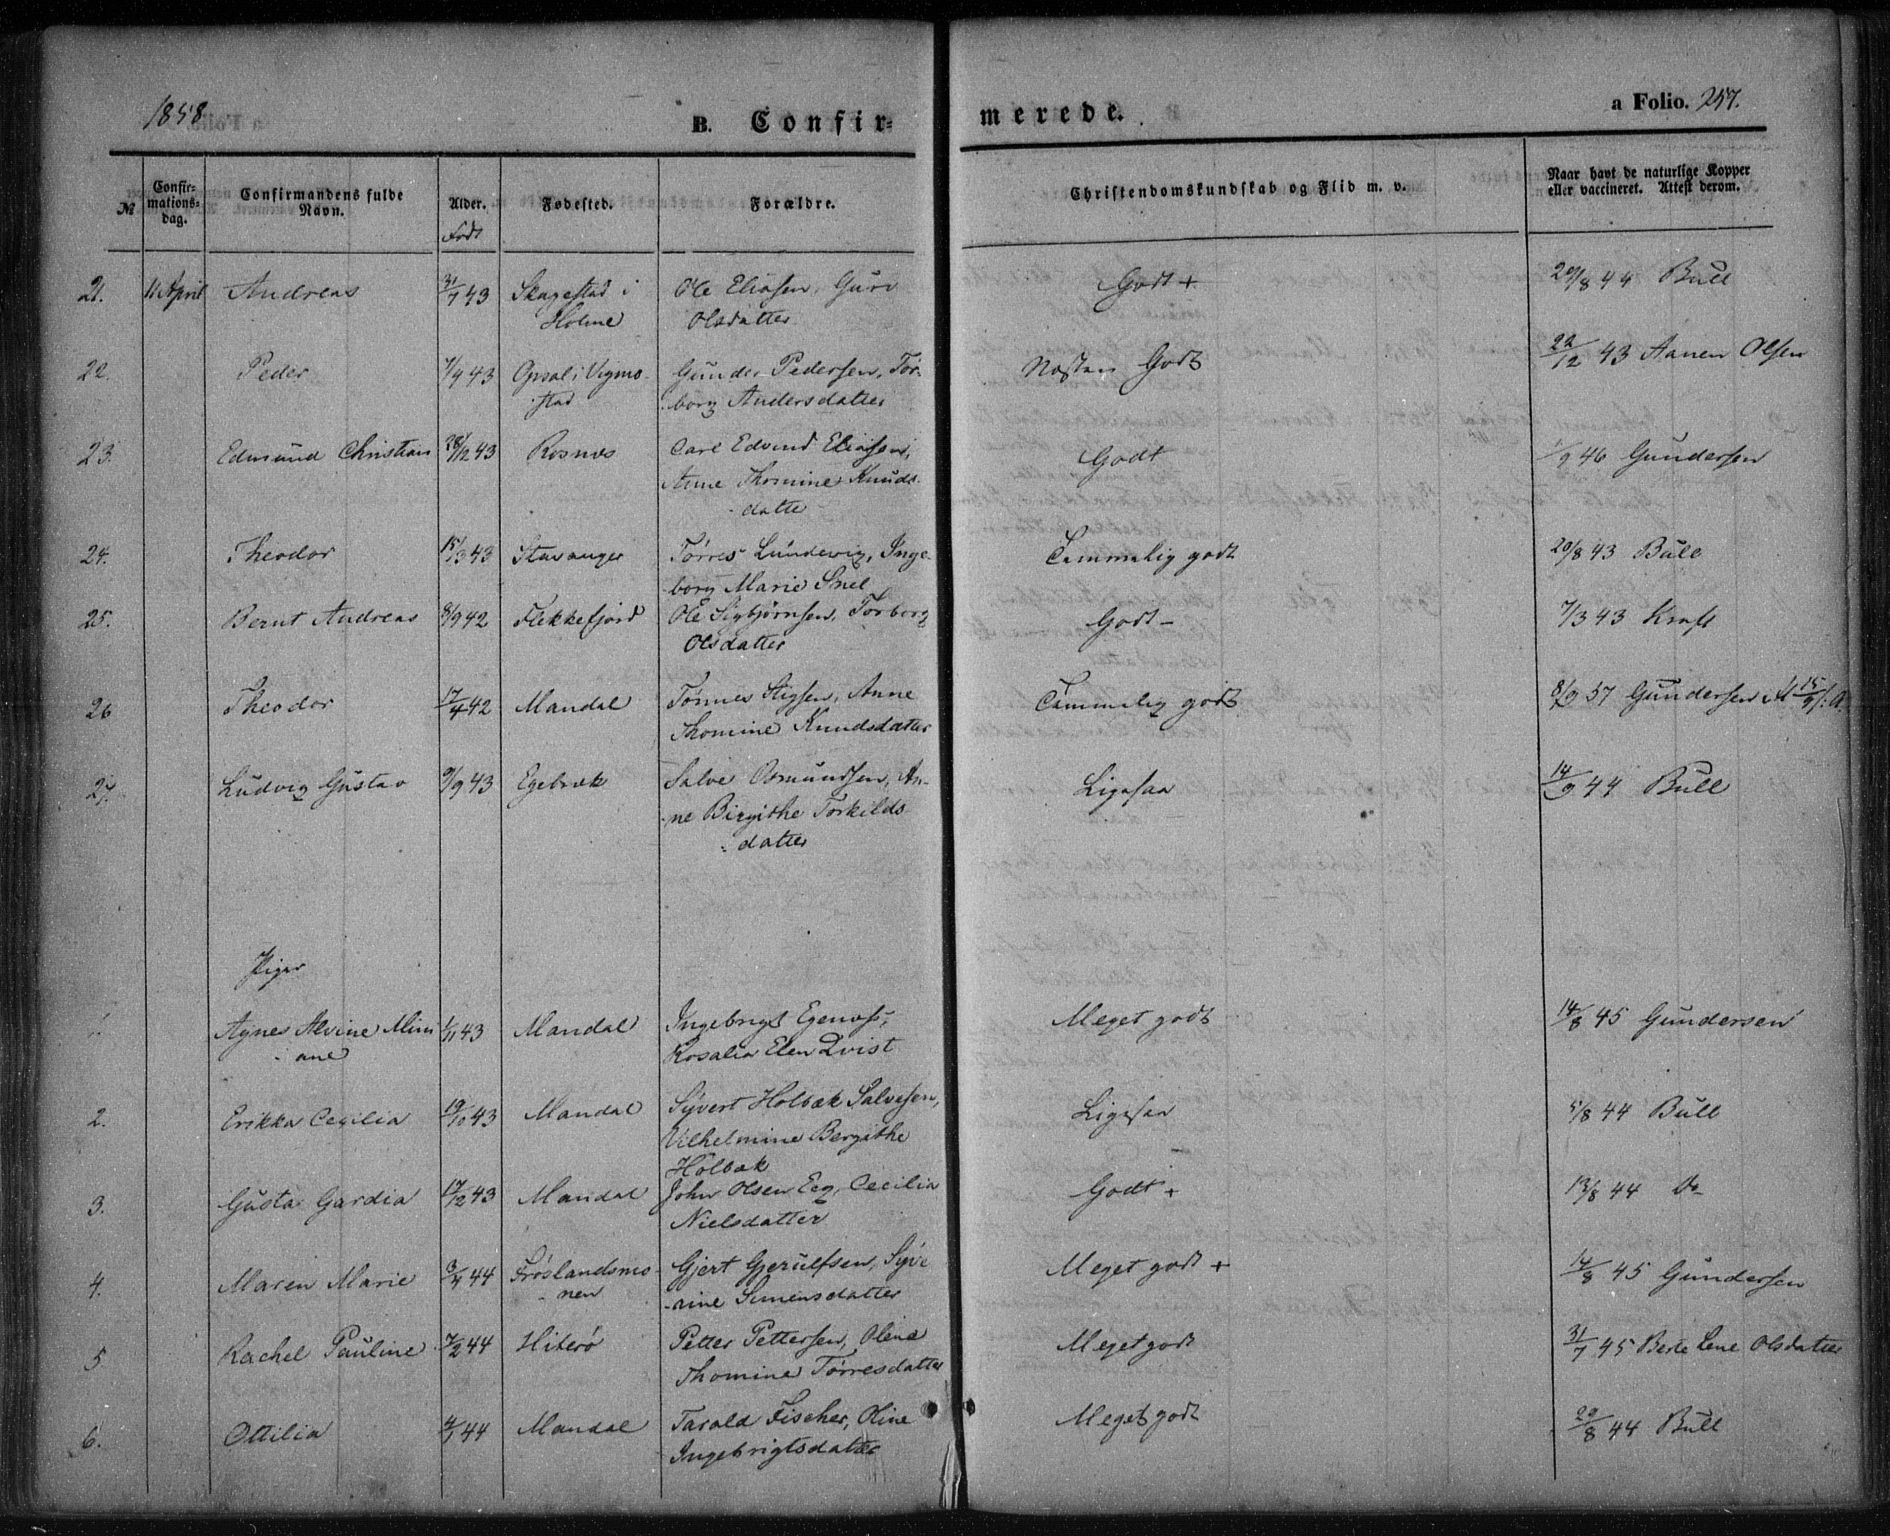 1858.
B. Confir=
merede.
a Folio. 257.
№
Confir=
mations=
dag.
Confirmandens fulde
Navn.
Alder.
Født
Fødested.
Forældre.
Christendomskundskab og Flid m. v.
Naar havt de naturlige Kopper
eller vaccineret. Attest derom.
21. 11 April Andreas 31/7 43 Skagestad i Ole Eliasen, Guri Godt + 29/8 44 Bull
Holme Olsdatter
22. Peder 7/9 43 Opsal i Vigmo- Gunder Pedersen, Tor- Næsten Godt 22/12 43 Aanen Olsen
stad borg Andersdatter
23. Edmund Christian 28/12 43 Rosnes Carl Edvind Eliasen, Godt 1/9 46 Gundersen
Anne Thomine Knuds-
datter
24. Theodor 15/3 43 Stavanger Tørres Lundevig, Inge- Tammelig godt 20/8 43 Bull
borg Marie Snel
25. Bernt Andreas 8/9 42 Flekkefjord Ole Sigbjørnsen, Torborg Godt - 7/3 43 Kraft
Olsdatter
26 Theodor 17/4 42 Mandal Tønnes Stigsen, Anne Tammelig godt 8/9 57 Gundersen
Thomine Knudsdatter
27. Ludvig Gustav 9/9 43 Egebæk Salve Osmundsen, An- Ligesaa 14/9 44 Bull
ne Birgithe Torkilds-
datter
Piger
1. Agnes Alvine Mini 1/11 43 Mandal Ingebrigt Egenæs, Meget godt 14/8 45 Gundersen
ane Rosalia Elen Qvist
2. Erikka Cecilia 19/10 43 Mandal Syvert Holbæk Salvesen, Ligesaa 5/8 44 Bull
Vilhelmine Bergithe
Holbæk
3. Gusta Gardia 17/12 43 Mandal John Olsen Eeg, Cecilia Godt + 13/8 44 Do
Nielsdatter
4. Maren Marie 3/4 44 Frøslandsmo- Gjert Gjerulfsen, Syve- Meget godt + 14/8 45 Gundersen
nen rine Simensdatter
5 Rachel Pauline 7/2 44 Hiterø Petter Pettersen, Oline Meget godt 31/7 45 Berte Lene Olsdatter
Thomine Tørresdatter
6. Ottilia 4/1 44 Mandal Tarald Fischer, Oline Meget godt 29/8 44 Bull
Ingebrigtsdatter